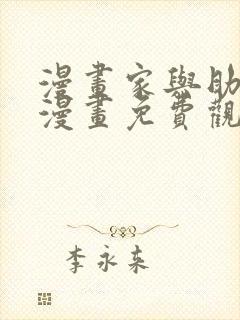 漫畫家與助
漫畫免費觀
李永来